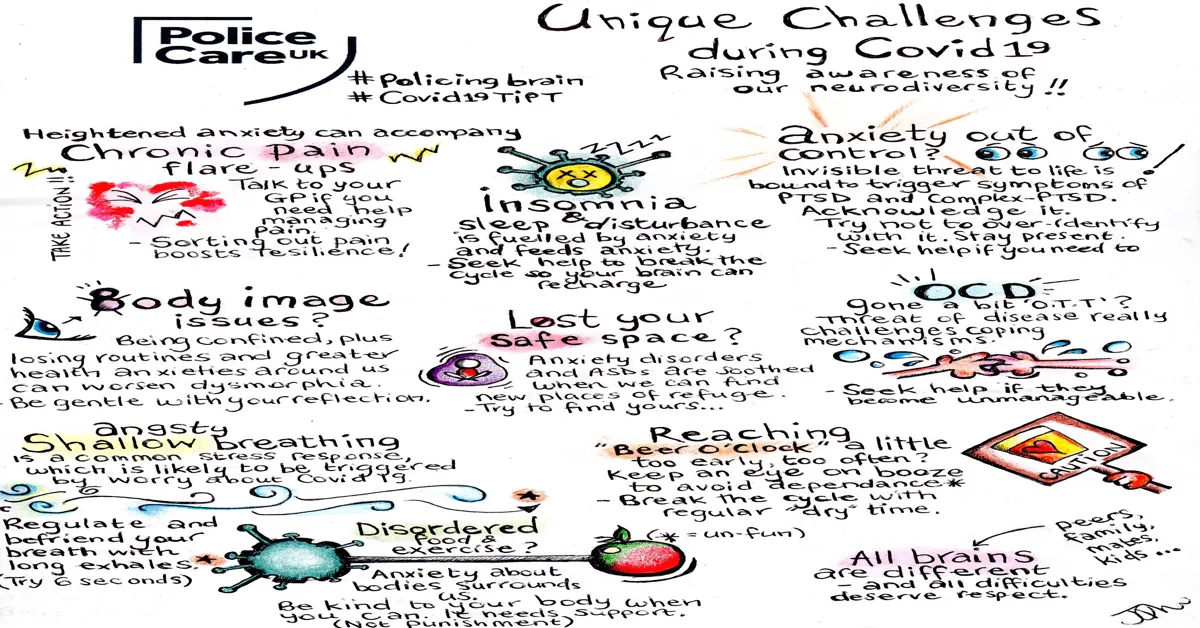 Police
Care UK
# Policing brain
# Covid19 TiPT
Unique Challenges
during Covid 19
Raising awareness of
our neurodiversity !!
Heightened anxiety can accompany
Chronic Pain
flare-ups
TAKE ACTION!!
Talk to your
GP if you
need help
managing
pain.
- Sorting out pain
boosts resilience!
insomnia
&
sleep disturbance
is fuelled by anxiety
and feeds anxiety.
- Seek help to break the
cycle so your brain can
recharge
anxiety out of
control?
Invisible threat to life is
bound to trigger symptoms of
PTSD and Complex-PTSD.
Acknowledge it.
Try not to over-identify
with it. Stay present.
- Seek help if you need to
Body image
issues?
Being confined, plus
losing routines and greater
health anxieties around us
can worsen dysmorphia.
- Be gentle with your reflection.
Lost your
Safe space?
Anxiety disorders
and ASDs are soothed
when we can find
new places of refuge.
- Try to find yours...
OCD
gone a bit 'O.T.T'?
Threat of disease really
challenges coping
mechanisms.
- Seek help if they
become unmanageable.
angsty
Shallow breathing
is a common stress response,
which is likely to be triggered
by worry about Covid 19.
Regulate and
befriend your
breath with
long exhales. *
(Try 6 seconds)
*
Disordered
food &
exercise?
Anxiety about
bodies surrounds
us.
Be kind to your body when
you can. It needs support.
(Not punishment)
Reaching
"Beer O'Clock" a little
too early, too often?
Keep an eye on booze
to avoid dependance*
- Break the cycle with
regular "dry" time.
(* = un-fun)
CAUTION
peers,
family,
mates,
kids...
All brains
are different
- and all difficulties
deserve respect.